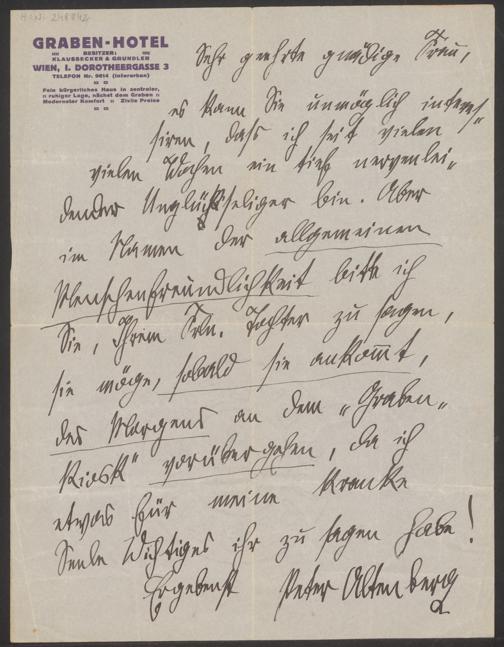 H.I.N. 248842
GRABEN-HOTEL
BESITZER:
KLAUSBECKER & GRUNDLER
WIEN, I. DOROTHEERGASSE 3
TELEFON Nr. 9614 (interurban)
Fein bürgerliches Haus in zentraler,
ruhiger Lage, nächst dem Graben
Modernster Komfort Zivile Preise
Sehr geehrte gnädige Frau,
es kann Sie unmöglich interes-
siren, dass ich seit vielen
vielen Wochen ein tief nervenlei-
dender Unglückseliger bin. Aber
im Namen der allgemeinen
Menschenfreundlichkeit bitte ich
Sie, Ihrem Frln. Tochter zu sagen,
sie möge, sobald sie ankommt,
des Morgens an dem „Graben-
Kiosk" vorübergehen, da ich
etwas für meine kranke
Seele Wichtiges ihr zu sagen habe!
Ergebenst Peter Altenberg